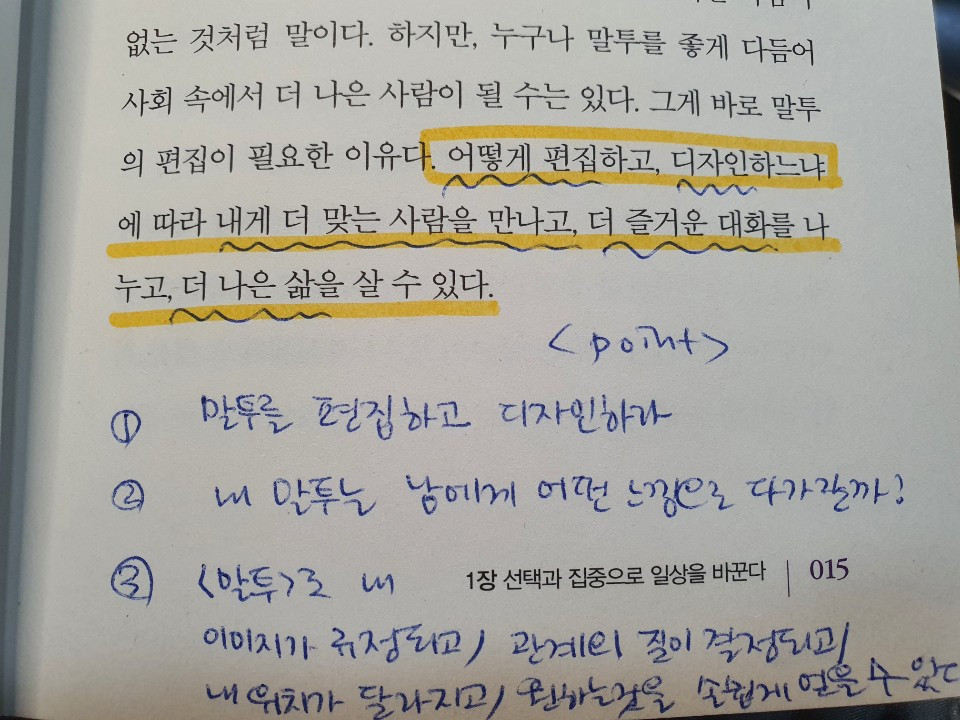 없는 것처럼 말이다. 하지만, 누구나 말투를 좋게 다듬어
사회 속에서 더 나은 사람이 될 수는 있다. 그게 바로 말투
의 편집이 필요한 이유다. 어떻게 편집하고, 디자인하느냐
에 따라 내게 더 맞는 사람을 만나고, 더 즐거운 대화를 나
누고, 더 나은 삶을 살 수 있다.
<point>
① 말투를 편집하고 디자인하라
② 내 말투는 남에게 어떤 느낌으로 다가갈까?
③ <말투>로 내
1장 선택과 집중으로 일상을 바꾼다 | 015
이미지가 규정되고, 관계의 질이 결정되고,
내 위치가 달라지고, 원하는것을 손쉽게 얻을 수 있다